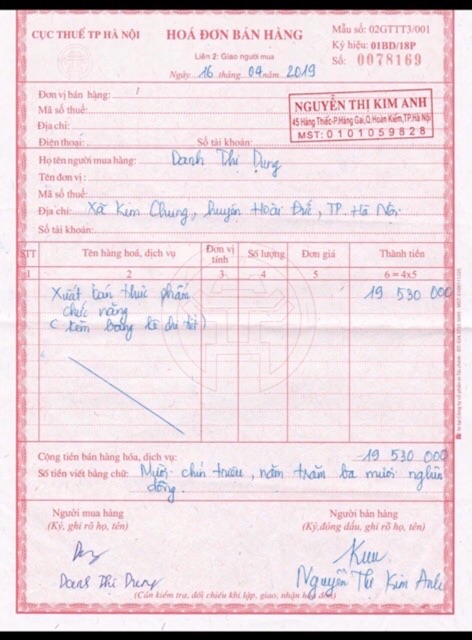 CỤC THUẾ TP HÀ NỘI
HOÁ ĐƠN BÁN HÀNG
Mẫu số: 02GTTT3/001
Liên 2: Giao người mua
Ký hiệu: 01BD/18P
Ngày 16 tháng 04 năm 2019
Số: 0078169
Đơn vị bán hàng:
Mã số thuế:
Địa chỉ:
Điện thoại: Số tài khoản:
NGUYỄN THỊ KIM ANH
45 Hàng Thiếc-P.Hàng Gai,Q.Hoàn Kiếm,TP.Hà Nội
MST: 0101059828
Họ tên người mua hàng: Danh Thị Dung
Tên đơn vị:
Mã số thuế:
Địa chỉ: Xã Kim Chung, huyện Hoài Đức, TP. Hà Nội
Số tài khoản:
STT Tên hàng hoá, dịch vụ Đơn vị tính Số lượng Đơn giá Thành tiền
1 2 3 4 5 6 = 4x5
Xuất bán thực phẩm 19 530 000
chức năng
( kèm bảng kê chi tiết)
Cộng tiền bán hàng hóa, dịch vụ: 19 530 000
Số tiền viết bằng chữ: Mười chín triệu, năm trăm ba mươi nghìn
đồng.
Người mua hàng Người bán hàng
(Ký, ghi rõ họ, tên) (Ký,đóng dấu, ghi rõ họ, tên)
Danh Thị Dung Nguyễn Thị Kim Anh
(Cần kiểm tra, đối chiếu khi lập, giao, nhận hoá đơn)